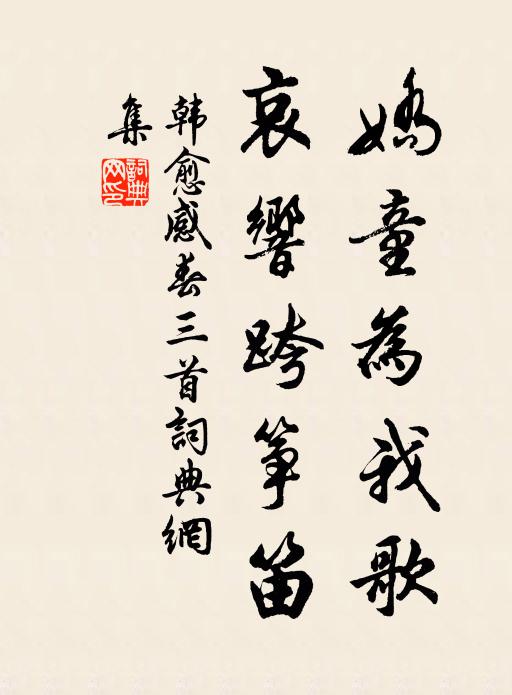 嬌童為我歌
哀響跨筝笛
韩愈感春三首詞典網
集
詞典
网印